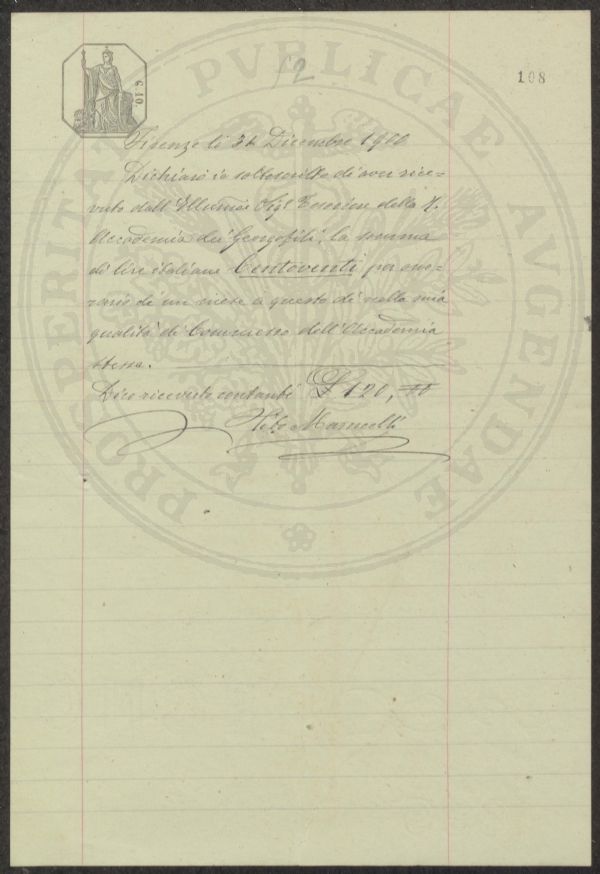 PROSPERITATI PVBLICAE AVGENDAE
12
108
C. 10
Firenze li 31 Dicembre 1900
Dichiaro io sottoscritto di aver rice-
vuto dall' Illumo Sigr Tesoriere della R.
Accademia dei Georgofili, la somma
di lire italiane Centoventi per ono-
rario di un mese a questo dì nella mia
qualità di Commesso dell' Accademia
stessa.
Dico ricevute contanti £ 120,
Marucelli